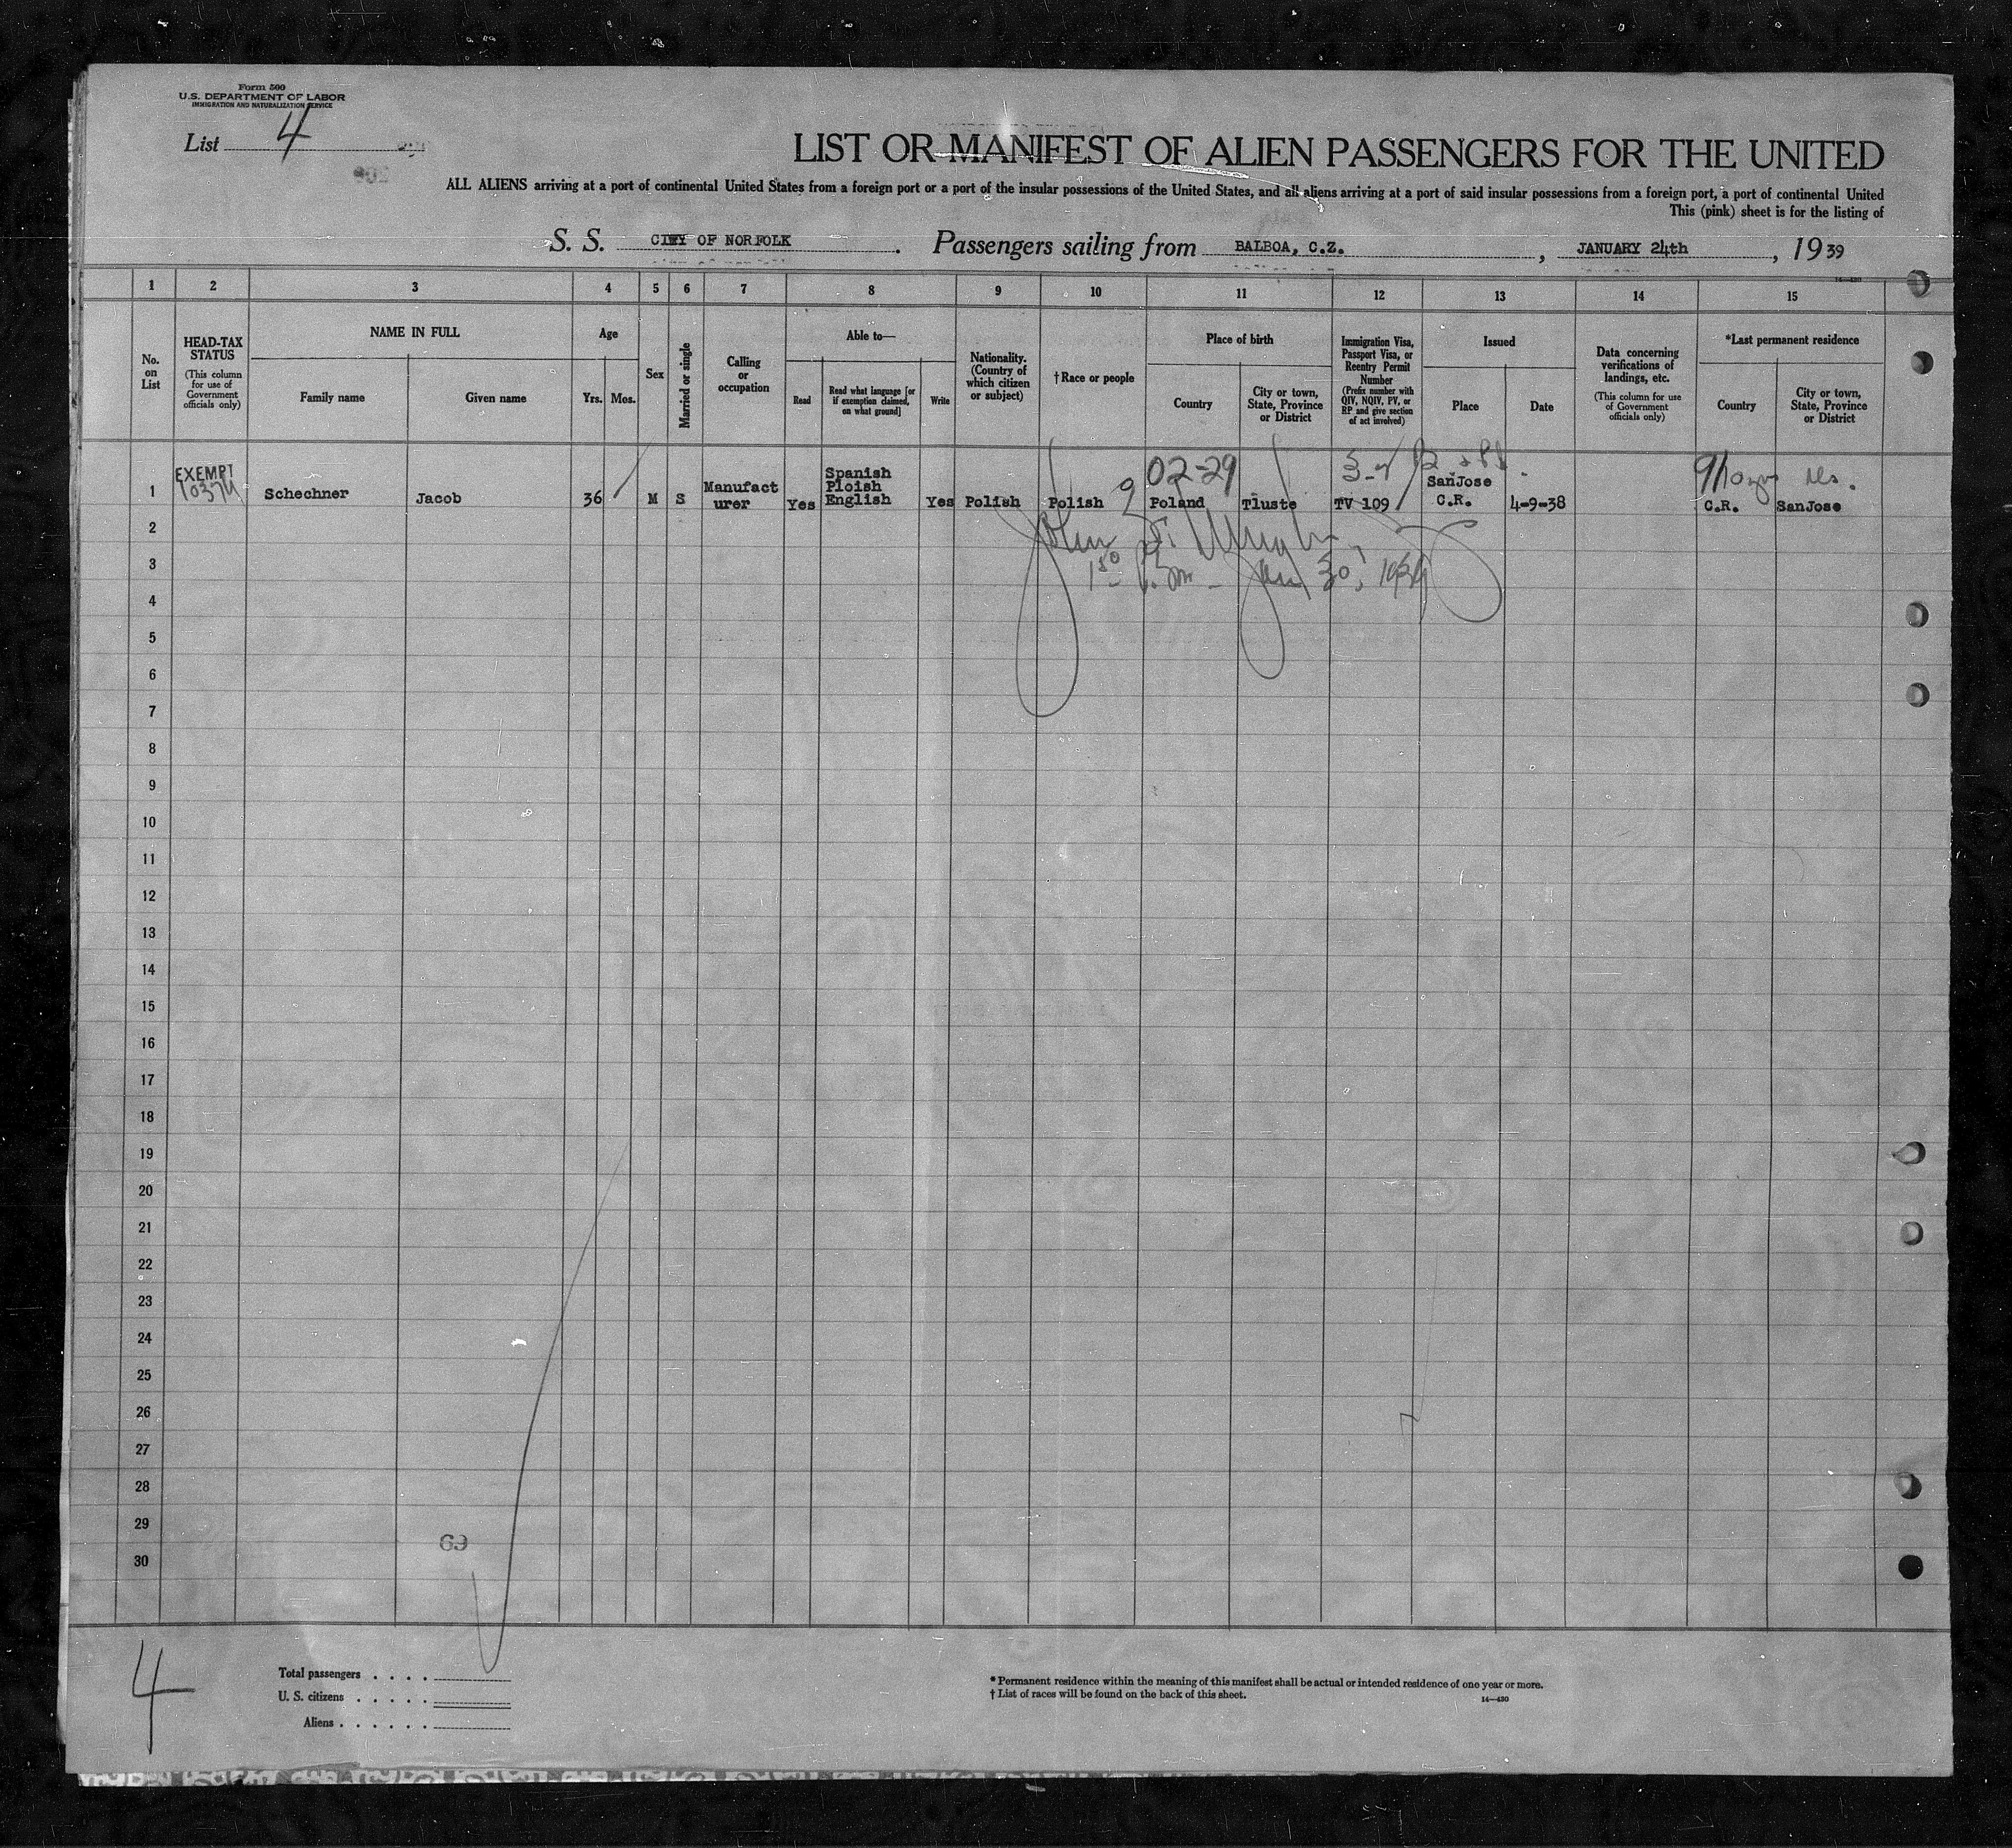 Form 500
U.S. DEPARTMENT OF LABOR
IMMIGRATION AND NATURALIZATION SERVICE
List 4
LIST OR MANIFEST OF ALIEN PASSENGERS FOR THE UNITED
ALL ALIENS arriving at a port of continental United States from a foreign port or a port of the insular possessions of the United States, and all aliens arriving at a port of said insular possessions from a foreign port, a port of continental United
This (pink) sheet is for the listing of
S. S. CITY OF NORFOLK. Passengers sailing from BALBOA, C.Z., JANUARY 24th, 1939
1 2 3 4 5 6 7 8 9 10 11 12 13 14 15
No. on List
HEAD-TAX STATUS
(This column for use of Government officials only)
NAME IN FULL
Family name
Given name
Age
Yrs. Mos.
Sex
Married or single
Calling or occupation
Able to—
Read
Read what language [or if exemption claimed, on what ground]
Write
Nationality. (Country of which citizen or subject)
†Race or people
Place of birth
Country
City or town, State, Province or District
Immigration Visa, Passport Visa, or Reentry Permit Number
(Prefix number with QIV, NQIV, PV, or RP and give section of act involved)
Issued
Place
Date
Data concerning verifications of landings, etc.
(This column for use of Government officials only)
*Last permanent residence
Country
City or town, State, Province or District
02-29
1 EXEMPT Schechner Jacob 36 M S Manufact urer Yes Spanish Ploish English Yes Polish Polish Poland Tluste TV 109 SanJose C.R. 4-9-38 C.R. SanJose
2
3
4
5
6
7
8
9
10
11
12
13
14
15
16
17
18
19
20
21
22
23
24
25
26
27
28
29
30
69
4
Total passengers . . . .
U. S. citizens . . . . .
Aliens . . . . . .
* Permanent residence within the meaning of this manifest shall be actual or intended residence of one year or more.
† List of races will be found on the back of this sheet.
14—430